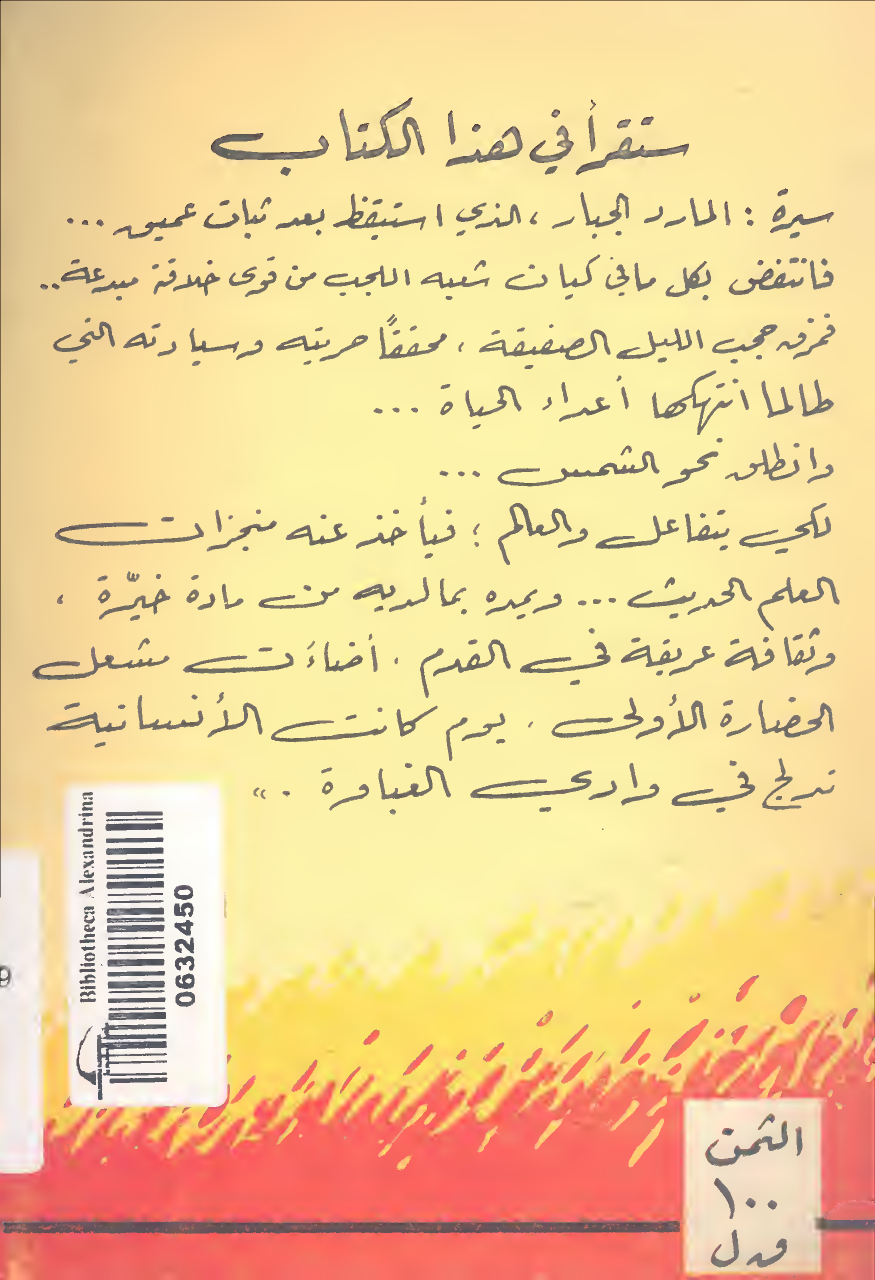 ستقرأ في هذا الكتاب
سيرة : المارد الجبار ، الذي استيقظ بعد ثبات عميق ...
فانتفض بكل ما في كيان شعبه اللجب من قوى خلاقة مبدعة ..
فمزق حجب الليل الصفيقة ، محققاً حريته وسيادته التي
طالما انتهكها أعداء الحياة ...
وانطلق نحو الشمس ...
لكي يتفاعل والعالم ؛ فيأخذ عنه منجزات
العلم الحديث ... ويمده بما لديه من مادة خيّرة ،
وثقافة عريقة في القدم ، أضاءَت مشعل
الحضارة الأولى ، يوم كانت الأنسانية
تدلج في وادي الغباوة . »
Bibliotheca Alexandrina
0632450
9
الثمن
١٠٠
ق.ل